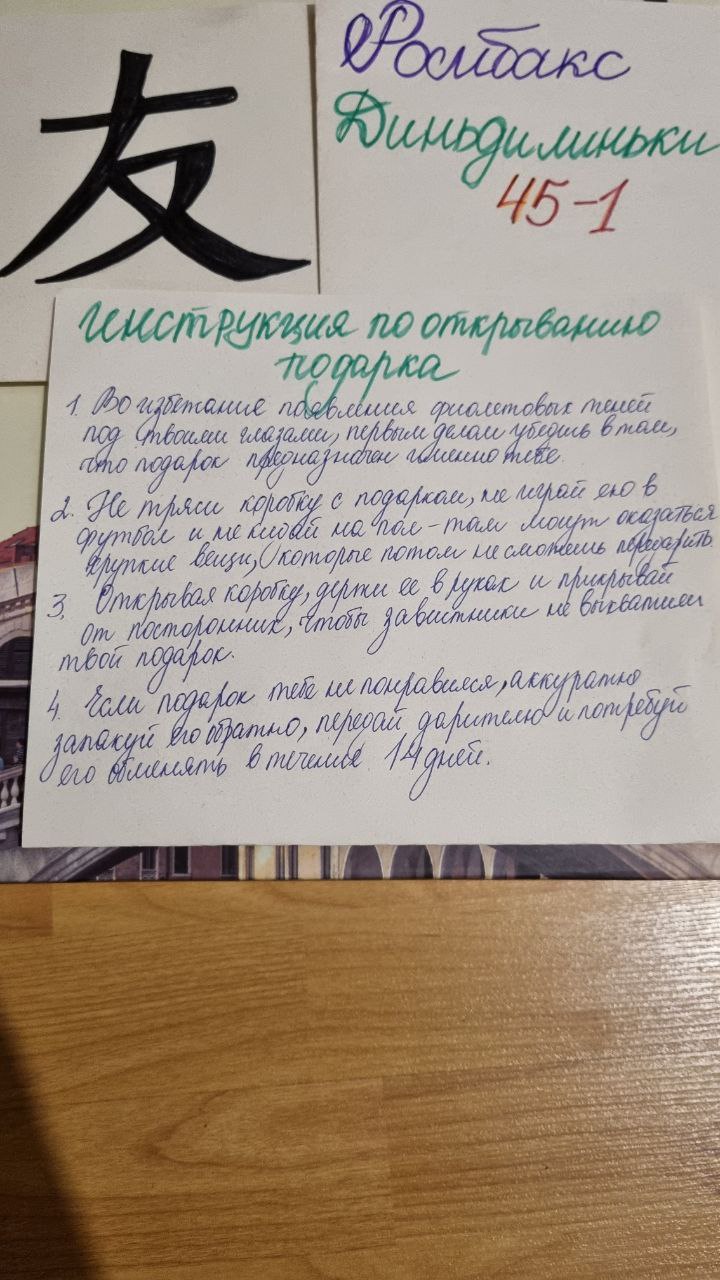 友
Ромбакс
Диньдилиньки
45-1
Инструкция по открыванию
подарка
1. Во избежание появления фиолетовых теней
под твоими глазами, первым делом убедись в том,
что подарок предназначен именно тебе.
2. Не тряси коробку с подарком, не играй ею в
футбол и не кидай на пол - там могут оказаться
хрупкие вещи, которые потом не сможешь передарить.
3. Открывая коробку, держи ее в руках и прикрывай
от посторонних, чтобы завистники не выхватили
твой подарок.
4. Если подарок тебе не понравился, аккуратно
запакуй его обратно, передай дарителю и потребуй
его обменять в течение 14 дней.